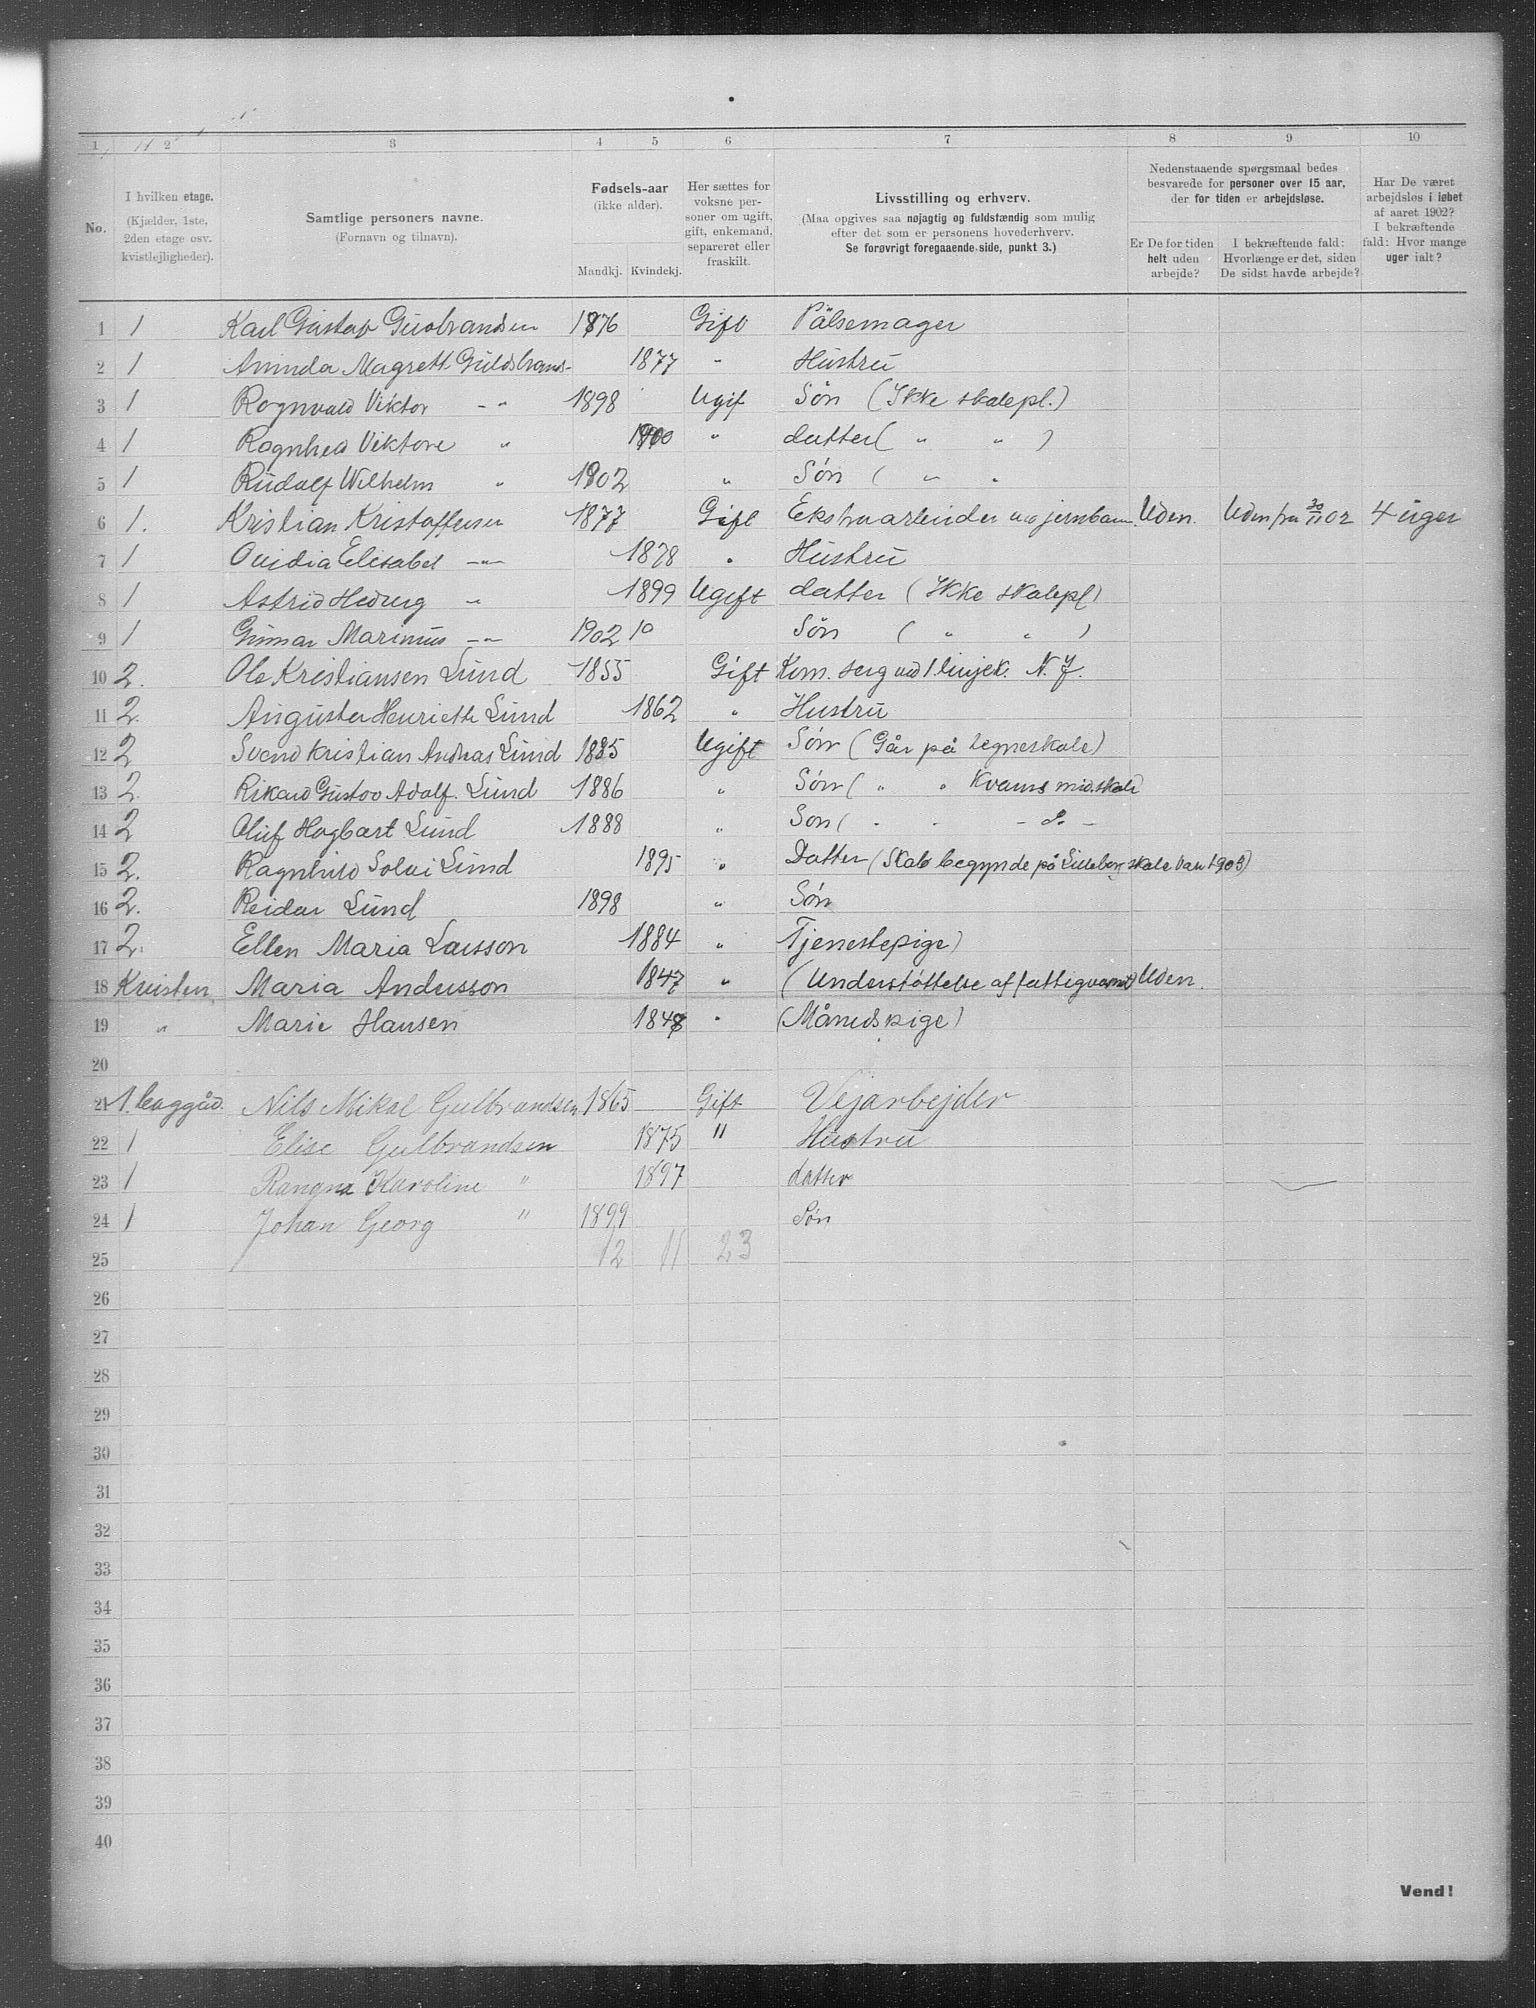 1 2 3 4 5 6 7 8 9 10
No.
I hvilken etage. (Kjælder, 1ste, 2den etage osv. kvistlejligheder).
Samtlige personers navne. (Fornavn og tilnavn).
Fødsels-aar (ikke alder). Mandkj. Kvindekj.
Her sættes for voksne personer om ugift, gift, enkemand, separeret eller fraskilt.
Livsstilling og erhverv. (Maa opgives saa nøjagtig og fuldstændig som mulig efter det som er personens hovederhverv. Se forøvrigt foregaaende side, punkt 3.)
Nedenstaaende spørgsmaal bedes besvarede for personer over 15 aar, der for tiden er arbejdsløse.
Er De for tiden helt uden arbejde?
I bekræftende fald: Hvorlænge er det, siden De sidst havde arbejde?
Har De været arbejdsløs i løbet af aaret 1902? I bekræftende fald: Hvor mange uger ialt?
1 1 Karl Gustav Gusbrandsen 1876 Gift Pälsemager
2 1 Aninda Magrett Guldsbrands- 1877 " Hustru
3 1 Rognvald Viktor -"- 1898 Ugif Søn (Ikke skolepl.)
4 1 Ragnhed Viktore " 1900 " datter ( " " )
5 1 Rudolf Wilhelm " 1902 " Søn ( " "
6 1. Kristian Kristoffersen 1877 Gift Ekstraarbeider ved jernban. Uden. Uden fra 30/11 02 4 uger
7 1 Ovidia Elisabet -"- 1878 " Hustru
8 1 Astrid Hedvig " 1899 Ugift datter (Ikke skolepl)
9 1 Gunnar Marinius -"- 1902 10 Søn ( " " )
10 2. Ole Kristiansen Lund 1855 Gift Kom. serg ved 1 linjek. N. J.
11 2. Auguster Henriette Lund 1862 " Hustru
12 2 Svend Kristian Andreas Lund 1885 Ugift Søn (Går på tegneskole)
13 2. Rikard Gustov Adolf. Lund 1886 " Søn ( " " Kvams mid.skole
14 2 Oluf Hagbart Lund 1888 " Søn ( " " - do -
15 2. Ragnhild Solvi Lund 1895 " Datter (Skal begynde på Lilleborg skole Van 1903)
16 2. Reidar Lund 1898 " Søn
17 2. Ellen Maria Larsson 1884 " Tjenestepige)
18 Kvisten, Maria Andersson 1847 " (Understøttelse af fattigvæsnet) Uden.
19 " Marie Hansen 1848 " (Månedspige)
20
21 1. baggård. Nils Mikal Gulbrandsen 1865 Gift Vejarbejder
22 1 Elise Gulbrandsen 1875 " Hustru
23 1 Rangna Karoline " 1897 datter
24 1 Johan Georg " 1899 Søn
25 12 11 23
26
27
28
29
30
31
32
33
34
35
36
37
38
39
40
Vend!